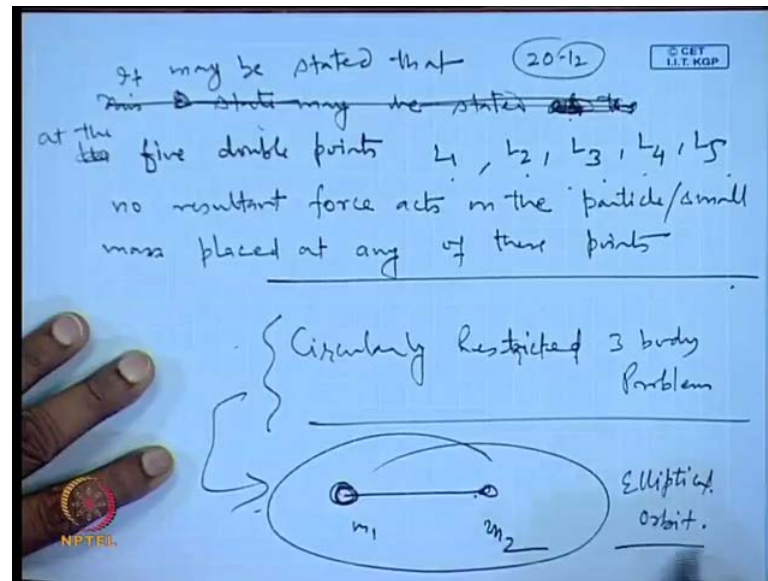 It may be stated that
20-12
© CET
I.I.T. KGP
at the five double points L1, L2, L3, L4, L5
no resultant force acts on the particle/small
mass placed at any of these points
Circularly Restricted 3 body
Problem
m1
m2
Elliptical
Orbit.
NPTEL